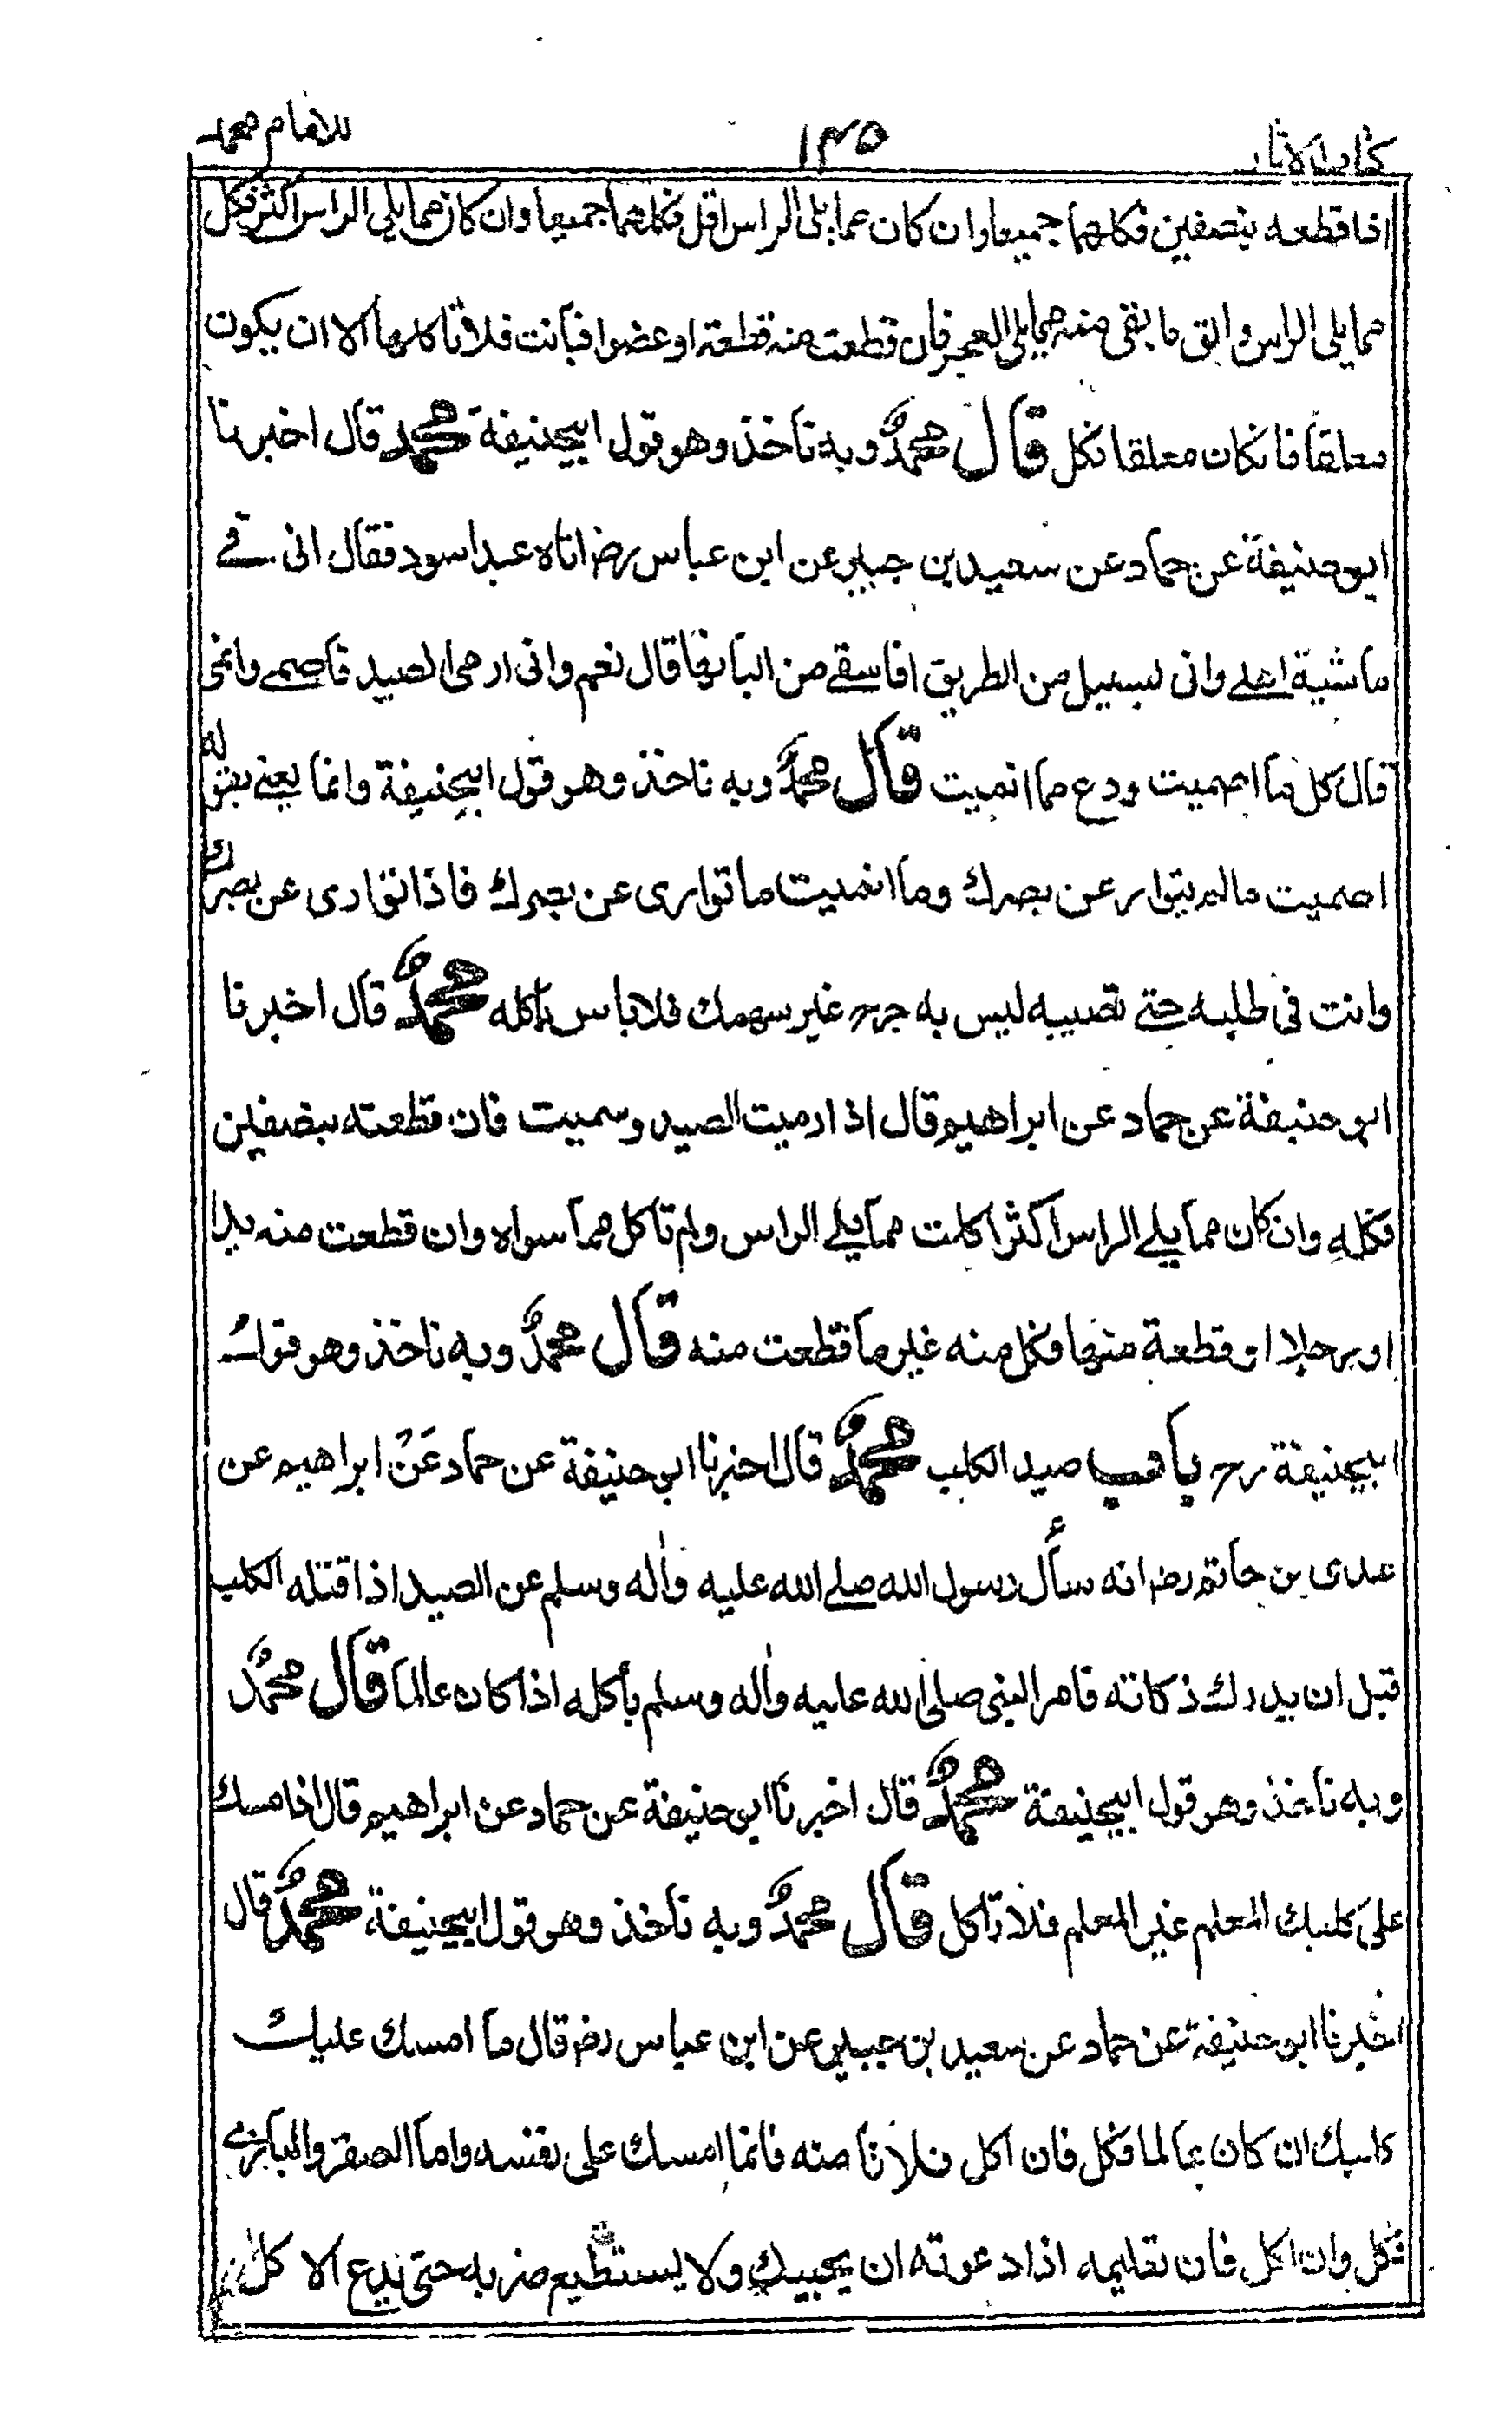 كتاب الاثار ١٤٥ للامام محمد
اذا قطعه بنصفين فكلهما جميعا وان كان مما يلى الراس اقل فكلهما جميعا وان كان مما يلى الراس اكثر فكل
مما يلى الراس والق ما بقى منه مما يلى العجز فان قطعت منه قطعة او عضوا فبانت فلا تاكلها الا ان يكون
معلقا فانكان معلقا فكل قال محمدؒ وبه ناخذ وهو قول ابيحنيفة محمد قال اخبرنا
ابو حنيفة عن حماد عن سعيد بن جبير عن ابن عباس رضـ اتاه عبد اسود فقال انى فے
ماشية اهلے وانى لسبيل من الطريق افاسقے من البانها قال نعم وانى ارمى الصيد فاصمے وانمى
قال كل ما اصميت ودع ما انميت قال محمدؒ وبه ناخذ وهو قول ابيحنيفة وانما يعنے بقوله
اصميت مالم يتوار عن بصرك وما انميت ما توارى عن بصرك فاذا توارى عن بصرك
وانت فى طلبه حتے تصيبه ليس به جرح غير سهمك فلا باس باكله محمدؒ قال اخبرنا
ابو حنيفة عن حماد عن ابراهيم قال اذا رميت الصيد وسميت فان قطعته بنصفين
فكله وان كان مما يلے الراس اكثر اكلت مما يلے الراس ولم تاكل مما سواه وان قطعت منه يدا
او رجلا او قطعة منها فكل منه غير ما قطعت منه قال محمدؒ وبه ناخذ وهو قول
ابيحنيفة رح باب صيد الكلب محمدؒ قال اخبرنا ابو حنيفة عن حماد عَنْ ابراهيم عن
عدى بن حاتم رضـ انه سأل رسول الله صلے الله عليه واٰله وسلم عن الصيد اذا قتله الكلب
قبل ان يدرك ذكاته فامر النبى صلى الله عليه واٰله وسلم بأكله اذا كان عالما قال محمدؒ
وبه ناخذ وهو قول ابيحنيفة محمدؒ قال اخبرنا ابو حنيفة عن حماد عن ابراهيم قال اذا امسك
على كلبك المعلم غير المعلم فلا تاكل قال محمدؒ وبه ناخذ وهو قول ابيحنيفة محمدؒ قال
اخبرنا ابو حنيفة عن حماد عن سعيد بن جبير عن ابن عباس رضـ قال ما امسك عليك
كلبك ان كان عالما فكل فان اكل فلا تا منه فانما امسك على نفسه واما الصقر والبازے
فكل وان اكل فان تعليمه اذا دعوته ان يجيبك ولا يستطيع ضربه حتى يدع الاكل